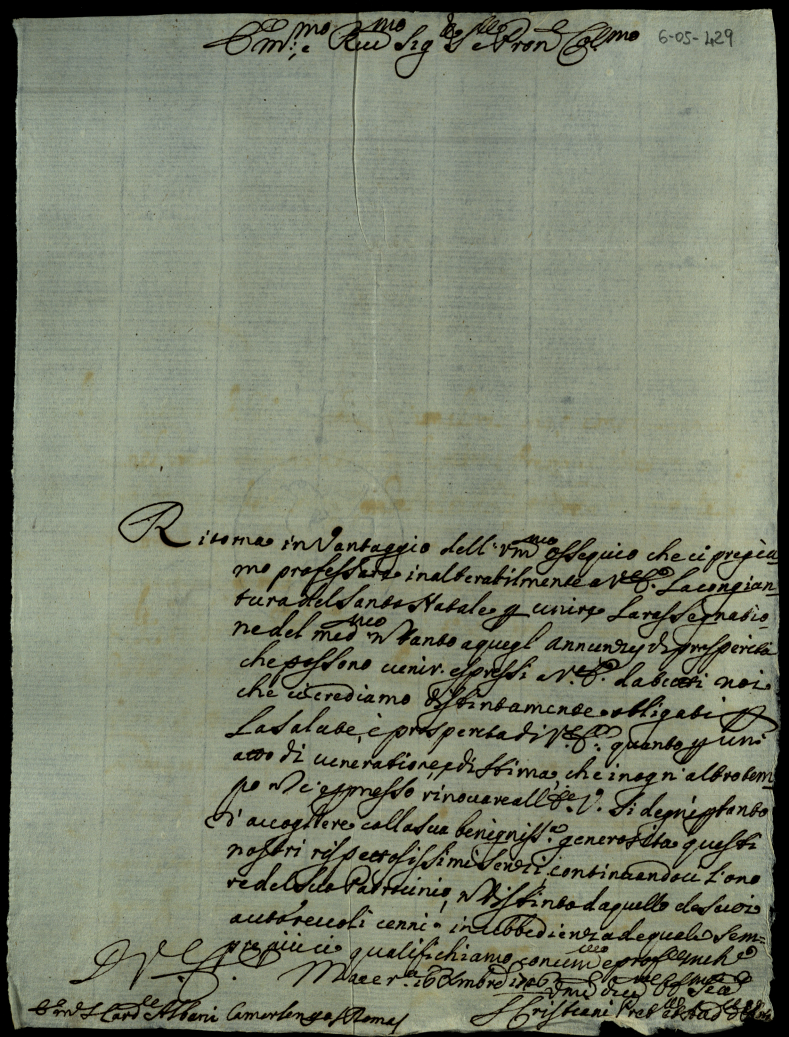 Em.mo e Rev.mo Sig.re Sig.re e Pron.e Col.mo
6-05-429
Ritorna in Vantaggio dell'um.mo ossequio che ci pregia
mo professare inalterabilmente a V.E. La congian
tura del Santo Natale p unire La rassegnatio
ne del med.mo Vanto a quegl'annunzij di prosperità
che possono venir espressi a V.E. da noi
che ci crediamo distintamente obligati p
La Salute, e prosperità di V.E. quanto p uni
atto di veneratione, e di stima, che in ogn'altro tem
po espresso rinovare all' V. Si degni p tanto
d'accogliere colla sua benigniss.a generosità questi
nostri rispettosissimi sensi, continuandoci l'ono
re del suo Patrocinio, distinto da quello de suoi
autorevoli cenni in ubbedienza de quali sem=
pre più ci qualifichiamo, con e prof.
D V.E.
Macer.a 16 Xmbre 1746
Em.o S Card.le Albani Camerlengo Roma
S Cristiani